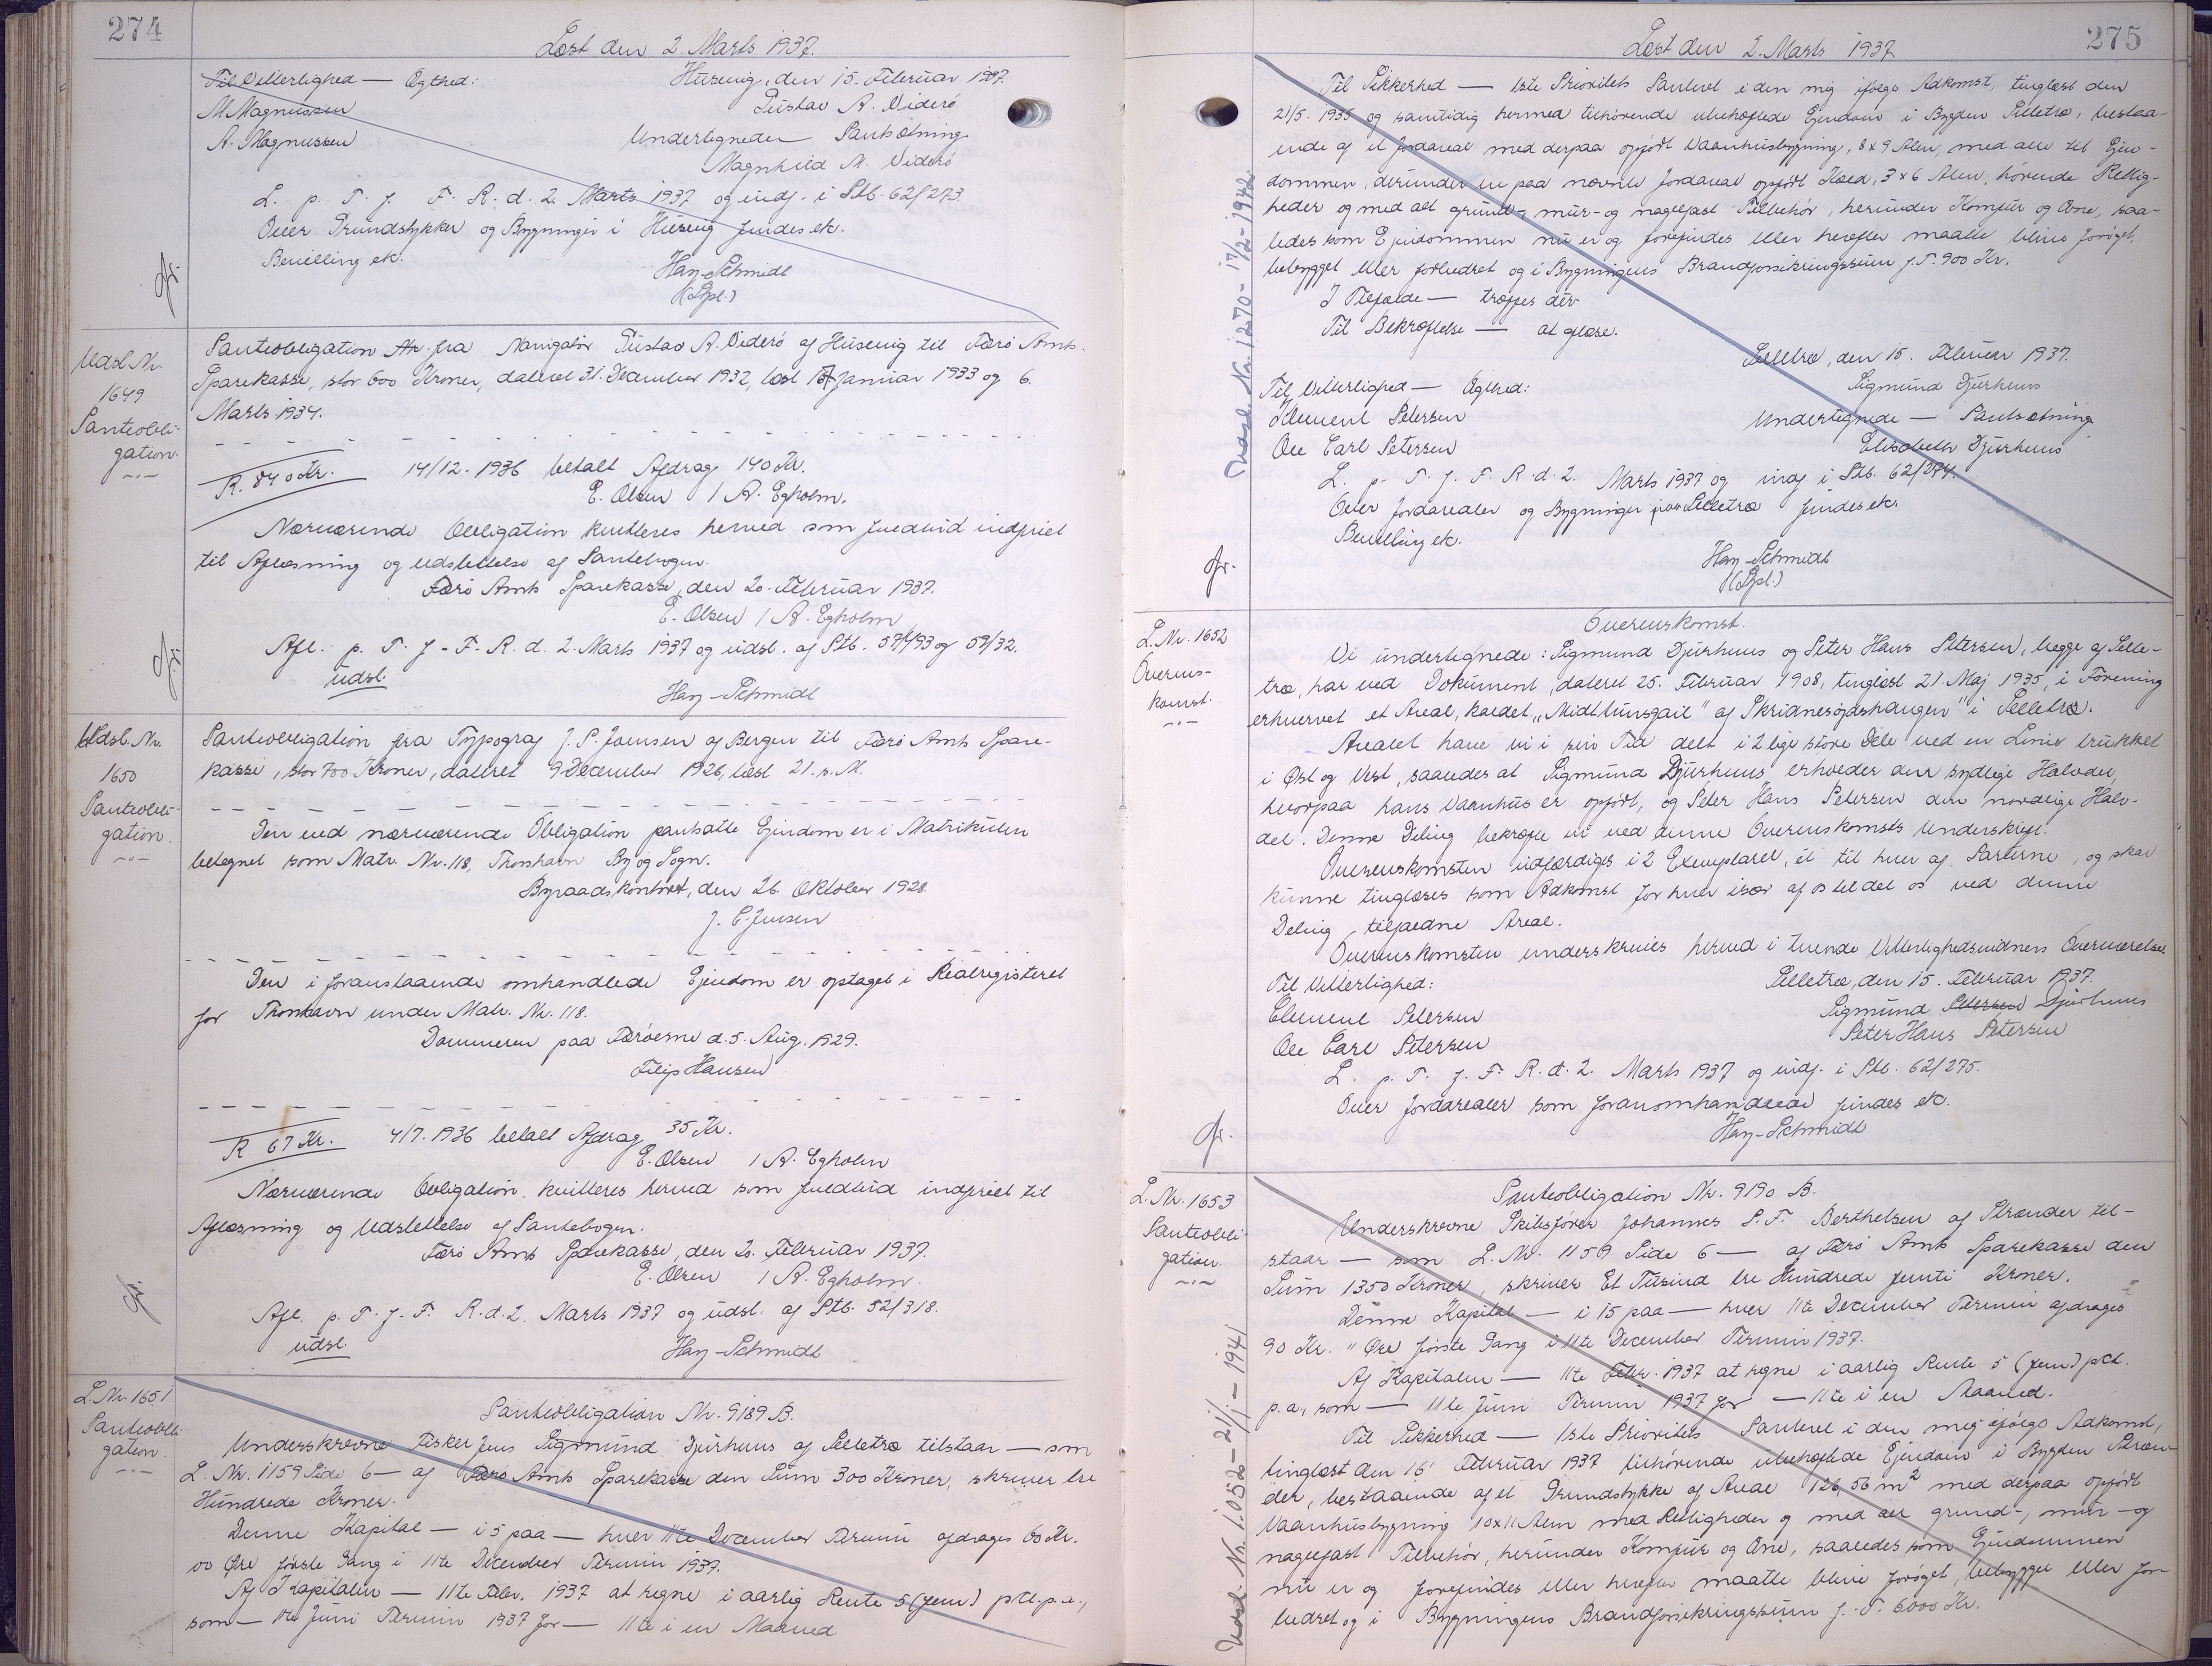 274
Læst den 2. Marts 1937.
Til Vitterlighed — Ægthed:
Husevig, den 15. Februar 1937.
M Magnussen
Gustav A. Viderö
A. Magnussen
Undertegnede — Pantsætning
Magnhild M. Viderö
L. p. T. f. F. R. d. 2. Marts 1937 og indf. i Stb. 62/273.
Over Grundstykker og Bygninger i Husevig findes ek.
Bevilling ek.
Hay-Schmidt
(Spl.)
Udsl. Nr.
1649
Panteobli-
gation.
Panteobligation fra Navigatör Gustav A. Viderö af Husevig til Færö Amts
Sparekasse, stor 600 Kroner, dateret 31. December 1932, læst 17 Januar 1933 og 6.
Marts 1934.
R. 840 Kr. 14/12-1936 betalt Afdrag 140 Kr.
E. Olsen / A. Egholm.
Nærværende Obligation kvitteres herved som fuldtud indfriet
til Aflæsning og Udslettelse af Pantebogen.
Færö Amts Sparekasse, den 20. Februar 1937.
E. Olsen / A. Egholm
Afl. p. T. f. F. R. d. 2. Marts 1937 og udsl. af Stb. 57/493 og 59/32.
udsl.
Hay-Schmidt
Udsl. Nr.
1650
Panteobli-
gation.
Panteobligation fra Typograf J. P. Joensen af Bergen til Færö Amts Spare-
kasse, stor 700 Kroner, dateret 9 December 1926, læst 21. s. M.
Den ved nærværende Obligation pantsatte Ejendom er i Matrikulen
betegnet som Matr. Nr. 118, Thorshavn By og Sogn.
Byraadskontoret, den 26. Oktober 1928.
J. C. Jensen
Den i foranstaaende omhandlede Ejendom er optaget i Realregisteret
for Thorshavn under Matr. Nr. 118.
Dommeren paa Færöerne d. 5. Aug. 1929.
Filip Hansen
R 67 Kr. 4/7. 1936 betalt Afdrag 35 Kr.
E. Olsen / A. Egholm
Nærværende Obligation kvitteres herved som fuldtud indfriet til
Aflæsning og Udslettelse af Pantebogen.
Færö Amts Sparekasse, den 20. Februar 1937.
E. Olsen / A. Egholm.
Afl. p. T. f. F. R. d. 2. Marts 1937 og udsl. af Stb. 52/318.
udsl.
Hay-Schmidt
L. Nr. 1651
Panteobli-
gation.
Panteobligation Nr. 9189 B.
Underskrevne Fisker Jens Sigmund Djurhuus af Selletræ tilstaar — som
L. Nr. 1159 Side 6 — af Færö Amts Sparekasse den Sum 300 Kroner, skriver tre
Hundrede Kroner.
Denne Kapital — i 5 paa — hver 11te December Termin afdrages 60 Kr.
00 Øre første Gang i 11te December Termin 1937.
Af Kapitalen — 11te Febr. 1937 at regne i aarlig Rente 5 (fem) pCt. p.a.,
som — 11te Juni Termin 1937 for — 11te i en Maaned
275
Læst den 2. Marts 1937
Til Sikkerhed — 1ste Prioritets Panteret i den mig ifølge Adkomst, tinglæst den
21/5. 1935 og samtidig hermed tilhørende ubehæftede Ejendom i Bygden Selletræ, bestaa-
ende af et Jordareal med derpaa opført Vaanhusbygning, 8 x 9 Alen, med alle til Ejen-
dommen, derunder en paa nævnte Jordareal opført Kæld, 3 x 6 Alen, hørende Rettig-
heder og med alt grund-, mur- og nagelfast Tilbehør, herunder Komfur og Ovne, saa-
ledes som Ejendommen nu er og forefindes eller herefter maatte blive forøget,
bebygget eller forbedret og i Bygningens Brandforsikringssum f. T. 900 Kr.
I Tilfælde — træffes dér
Til Bekræftelse — at læse.
Selletræ, den 15. Februar 1937.
Til Vitterlighed — Ægthed:
Sigmund Djurhuus
Klement Petersen
Undertegnede — Pantsætning
Ole Carl Petersen
Elisabeth Djurhuus
L. p. T. f. F. R. d. 2. Marts 1937 og indf i Stb. 62/274.
Over Jordarealer og Bygninger paa Selletræ findes ek.
Bevilling ek.
Hay-Schmidt
(Spl.)
Udsl. Nr. 1270 - 17/2 - 1942.
L. Nr. 1652
Overens-
komst.
Overenskomst.
Vi undertegnede: Sigmund Djurhuus og Peter Hans Petersen, begge af Selle-
træ, har ved Dokument, dateret 25. Februar 1908, tinglæst 21. Maj 1935, i Forening
erhvervet et Areal, kaldet „Midltunsgail" af Skridnesøgdshaugen" i Selletræ.
Arealet have vi i sin Tid delt i 2 lige store Dele ved en Linie trukket
i Øst og Vest, saaledes at Sigmund Djurhuus erholder den sydlige Halvdel,
hvorpaa hans Vaanhus er opført, og Peter Hans Petersen den nordlige Halv-
del. Denne Deling bekræfte vi ved denne Overenskomsts Underskrift.
Overenskomsten udfærdiges i 2 Exemplarer, ét til hver af Parterne, og skal
kunne tinglæses som Adkomst for hver især af os til det os ved denne
Deling tilfaldne Areal.
Overenskomsten underskrives herved i tvende Vitterlighedsvidners Overværelse.
Selletræ, den 15. Februar 1937.
Til Vitterlighed:
Sigmund Petersen Djurhuus
Clement Petersen
Peter Hans Petersen
Ole Carl Petersen
L. p. T. f. F. R. d. 2. Marts 1937 og indf. i Stb. 62/275.
Over Jordarealer som foranomhandlede findes ek.
Hay-Schmidt
L. Nr. 1653
Panteobli-
gation.
Panteobligation Nr. 9190 B.
Underskrevne Skibsfører Johannes S. F. Berthelsen af Strænder til-
staar — som L. Nr. 1159 Side 6 — af Færö Amts Sparekasse den
Sum 1350 Kroner, skriver Et Tusind tre Hundrede femti Kroner.
Denne Kapital — i 15 paa — hver 11te December Termin afdrages
90 Kr. " Øre første Gang i 11te December Termin 1937.
Af Kapitalen — 11te Febr. 1937 at regne i aarlig Rente 5 (fem) pCt.
p.a., som — 11te Juni Termin 1937 for — 11te i en Maaned.
Til Sikkerhed — 1ste Prioritets Panteret i den mig ifølge Adkomst,
tinglæst den 16' Februar 1937 tilhørende ubehæftede Ejendom i Bygden Stræn-
der, bestaaende af et Grundstykke af Areal 126,56 m² med derpaa opført
Vaanhusbygning 10 x 11 Alen med Rettigheder og med alt grund-, mur- og
nagelfast Tilbehør, herunder Komfur og Ovne, saaledes som Ejendommen
nu er og forefindes eller herefter maatte blive forøget, bebygget eller for-
bedret og i Bygningens Brandforsikringssum f. T. 6000 Kr.
Udsl. Nr. 1.052 - 21/1 - 1941